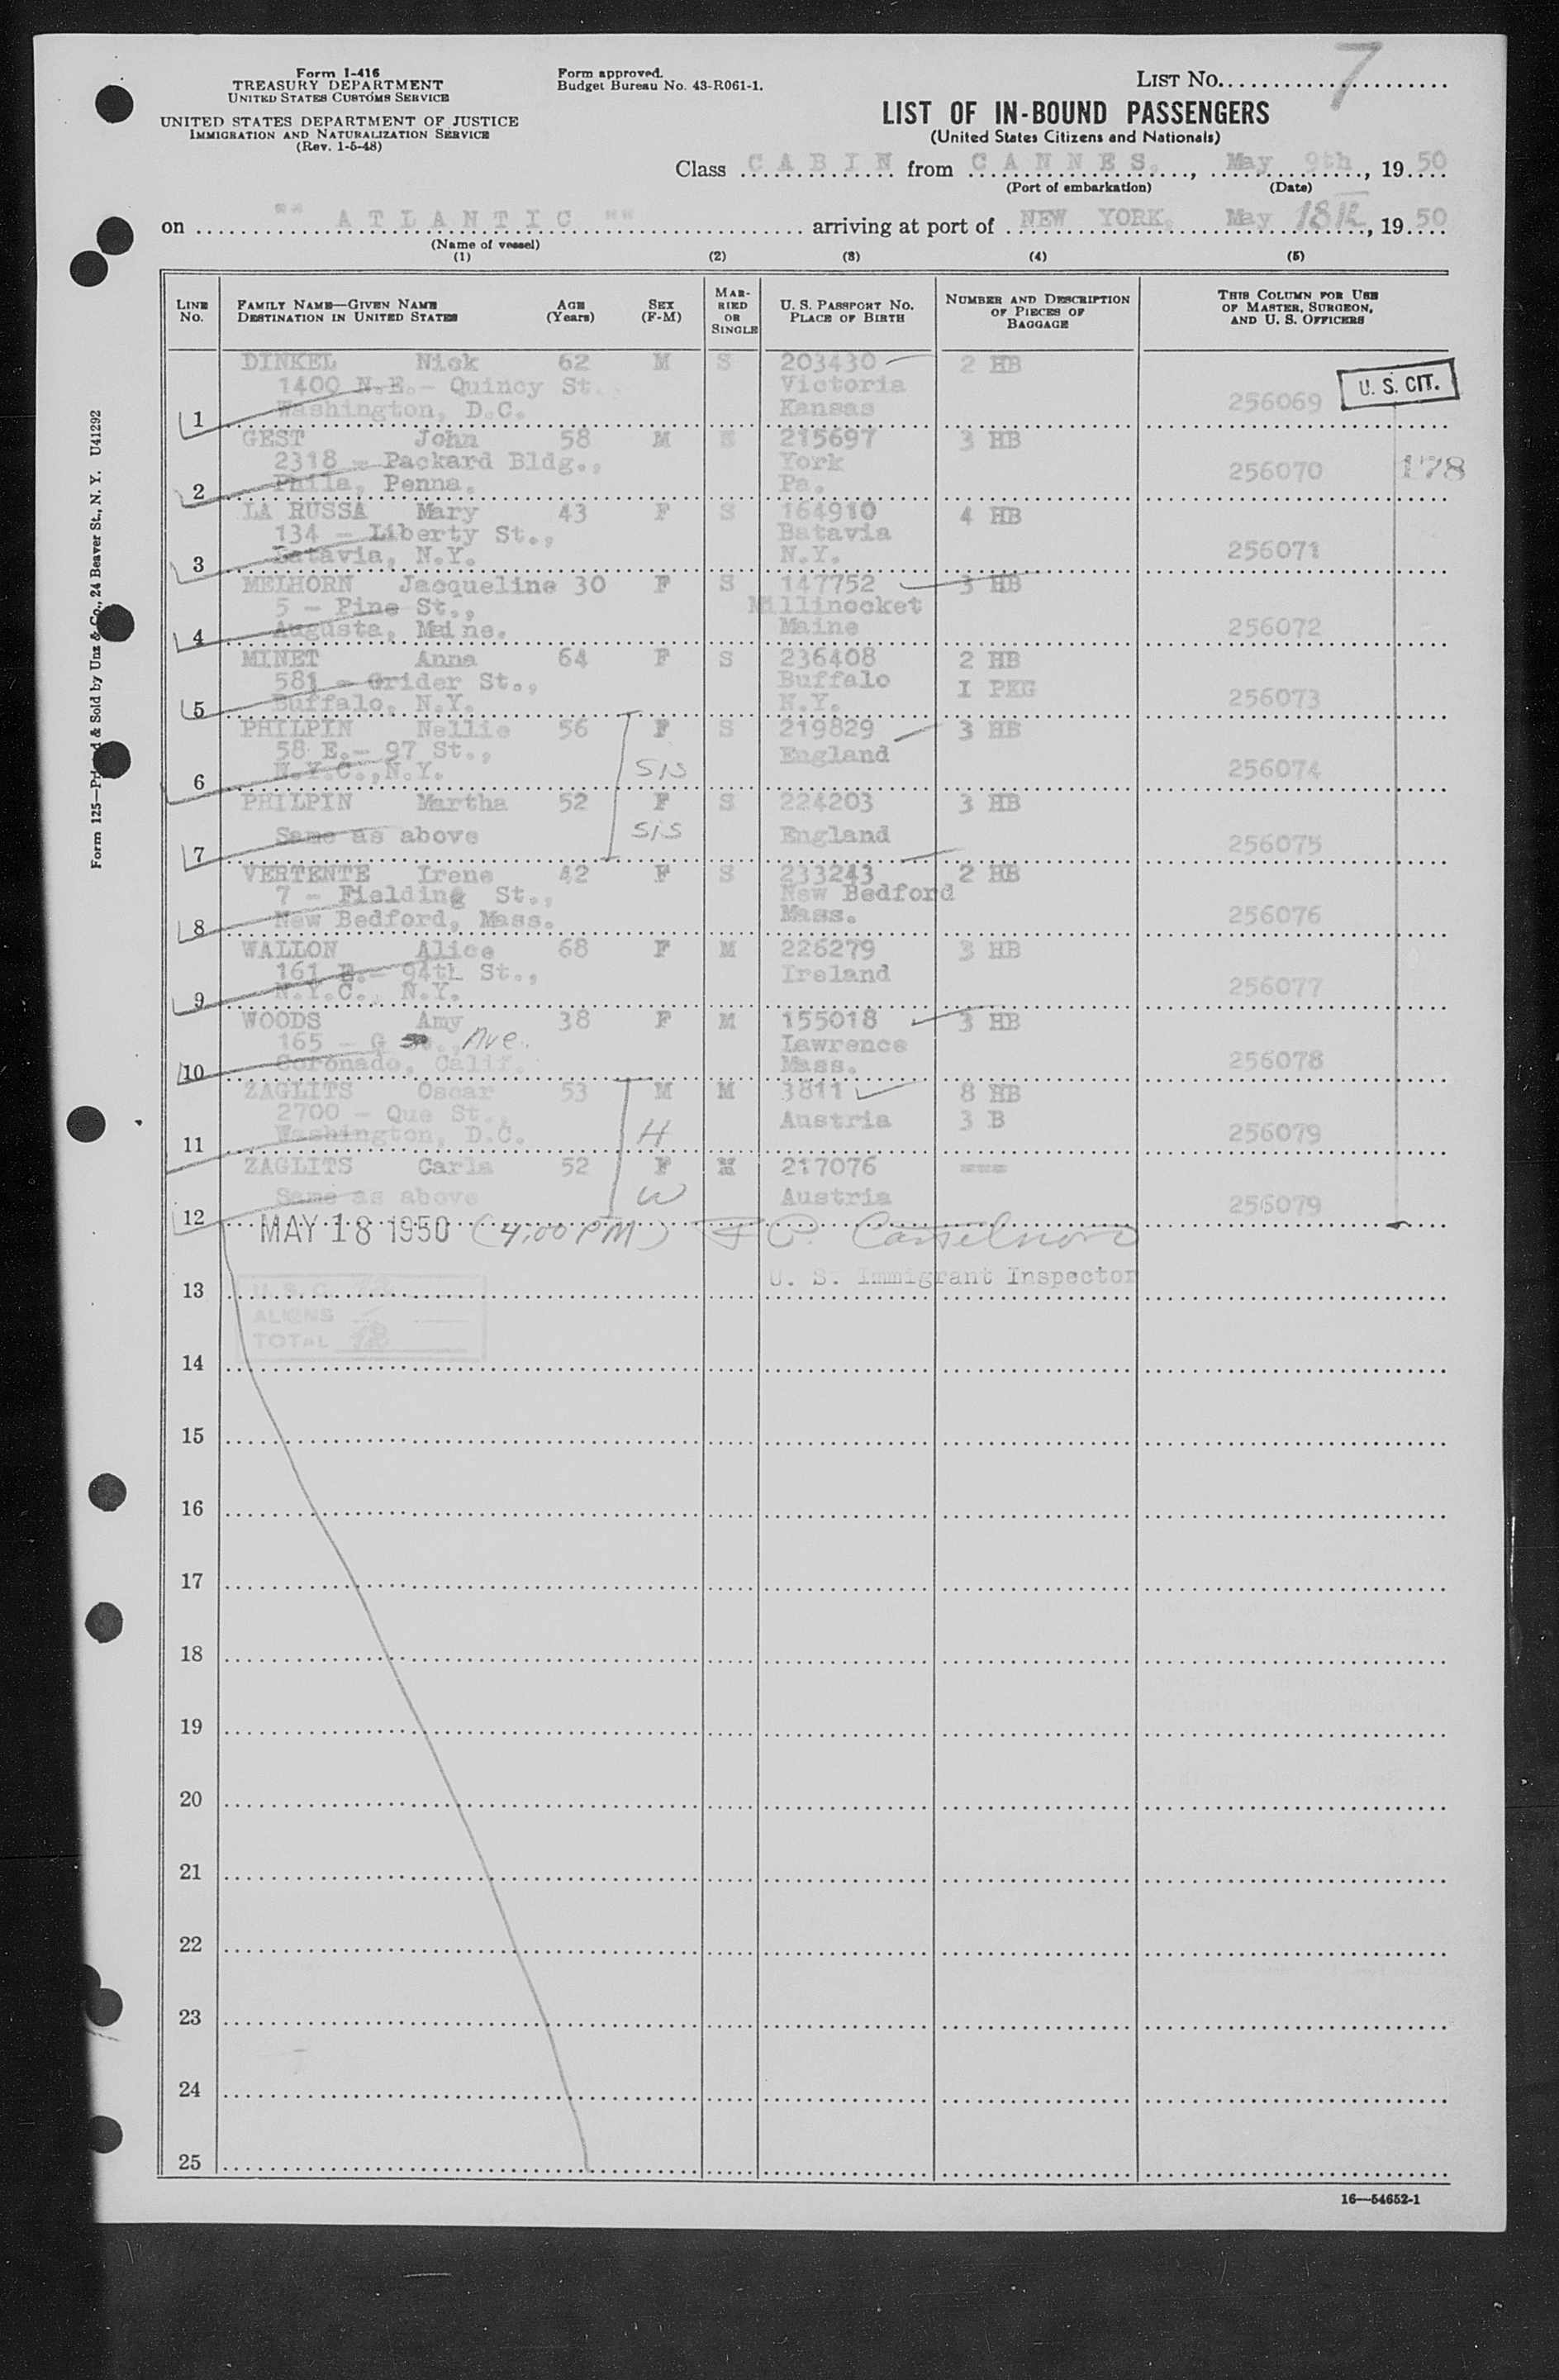 Form I-416
TREASURY DEPARTMENT
UNITED STATES CUSTOMS SERVICE
UNITED STATES DEPARTMENT OF JUSTICE
IMMIGRATION AND NATURALIZATION SERVICE
(Rev. 1-5-48)
Form approved.
Budget Bureau No. 43-R061-1.
LIST No. 7
LIST OF IN-BOUND PASSENGERS
(United States Citizens and Nationals)
Class CABIN from CANNES, May 9th, 1950
(Port of embarkation) (Date)
on "" ATLANTIC "" arriving at port of NEW YORK, May 18th, 1950
(Name of vessel)
(1) (2) (3) (4) (5)
LINE No. FAMILY NAME—GIVEN NAME DESTINATION IN UNITED STATES AGE (Years) SEX (F-M) MARRIED OR SINGLE U. S. PASSPORT NO. PLACE OF BIRTH NUMBER AND DESCRIPTION OF PIECES OF BAGGAGE THIS COLUMN FOR USE OF MASTER, SURGEON, AND U. S. OFFICERS
DINKEL Nick 62 M S 203430 2 HB
1400 N.E.- Quincy St. Victoria U. S. CIT.
1 Washington, D.C. Kansas 256069
GEST John 58 M 215697 3 HB
2318 - Packard Bldg., York 256070 178
2 Phila, Penna. Pa.
LA RUSSA Mary 43 F S 164910 4 HB
134 - Liberty St., Batavia
3 Batavia, N.Y. N.Y. 256071
MELHORN Jacqueline 30 F S 147752 3 HB
5 - Pine St., Millinocket
4 Augusta, Maine. Maine 256072
MINET Anna 64 F S 236408 2 HB
581 - Grider St., Buffalo I PKG
5 Buffalo, N.Y. N.Y. 256073
PHILPIN Nellie 56 F S 219829 3 HB
58 E.- 97 St., England
6 N.Y.C.,N.Y. SIS 256074
PHILPIN Martha 52 F S 224203 3 HB
7 Same as above SIS England 256075
VERTENTE Irene 42 F S 233243 2 HB
7 - Fielding St., New Bedford
8 New Bedford, Mass. Mass. 256076
WALLON Alice 68 F M 226279 3 HB
161 E.- 94th St., Ireland
9 N.Y.C., N.Y. 256077
WOODS Amy 38 F M 155018 3 HB
165 - G Ave. Lawrence
10 Coronado, Calif. Mass. 256078
ZAGLITS Oscar 53 M M 3811 8 HB
2700 - Que St., Austria 3 B
11 Washington, D.C. H 256079
ZAGLITS Carla 52 F M 217076 ===
Same as above W Austria 256079
12 MAY 18 1950 (4:00 PM)
U. S. Immigrant Inspector
13 U. S. C. 12
ALIENS -
TOTAL 12
14
15
16
17
18
19
20
21
22
23
24
25
16—54652-1
Form 125—Printed & Sold by Unz & Co., 24 Beaver St., N. Y. U41292